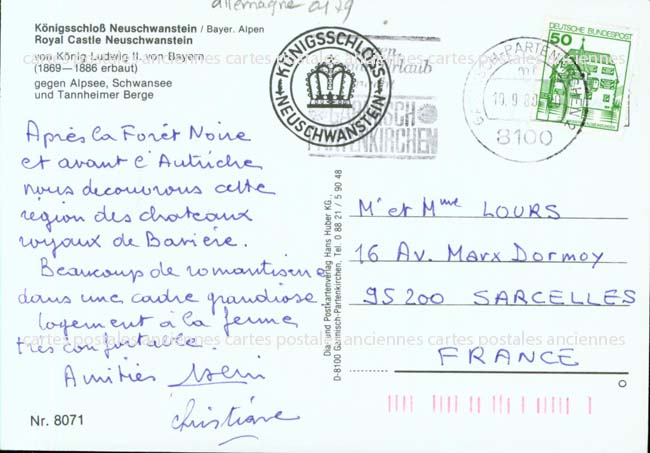 allemagne
Königsschloß Neuschwanstein / Bayer. Alpen
Royal Castle Neuschwanstein
von König Ludwig II. von Bayern
(1869—1886 erbaut)
gegen Alpsee, Schwansee
und Tannheimer Berge
KÖNIGSSCHLOSS
NEUSCHWANSTEIN
Urlaub
GARMISCH
PARTENKIRCHEN
10.9.80
8100
DEUTSCHE BUNDESPOST
50
Après la Forêt Noire
et avant l'Autriche
nous decouvrons cette
région des chateaux
royaux de Bavière.
Beaucoup de romantisme
dans une cadre grandiose
logement à la ferme
très confortable.
Amitiés
Christiane
Nr. 8071
Dia- und Postkartenverlag Hans Huber KG.,
D-8100 Garmisch-Partenkirchen, Tel. 0 88 21 / 5 90 48
Mr et Mme LOURS
16 Av. Marx Dormoy
95200 SARCELLES
FRANCE
cartes postales anciennes cartes postales anciennes
cartes postales anciennes cartes postales anciennes